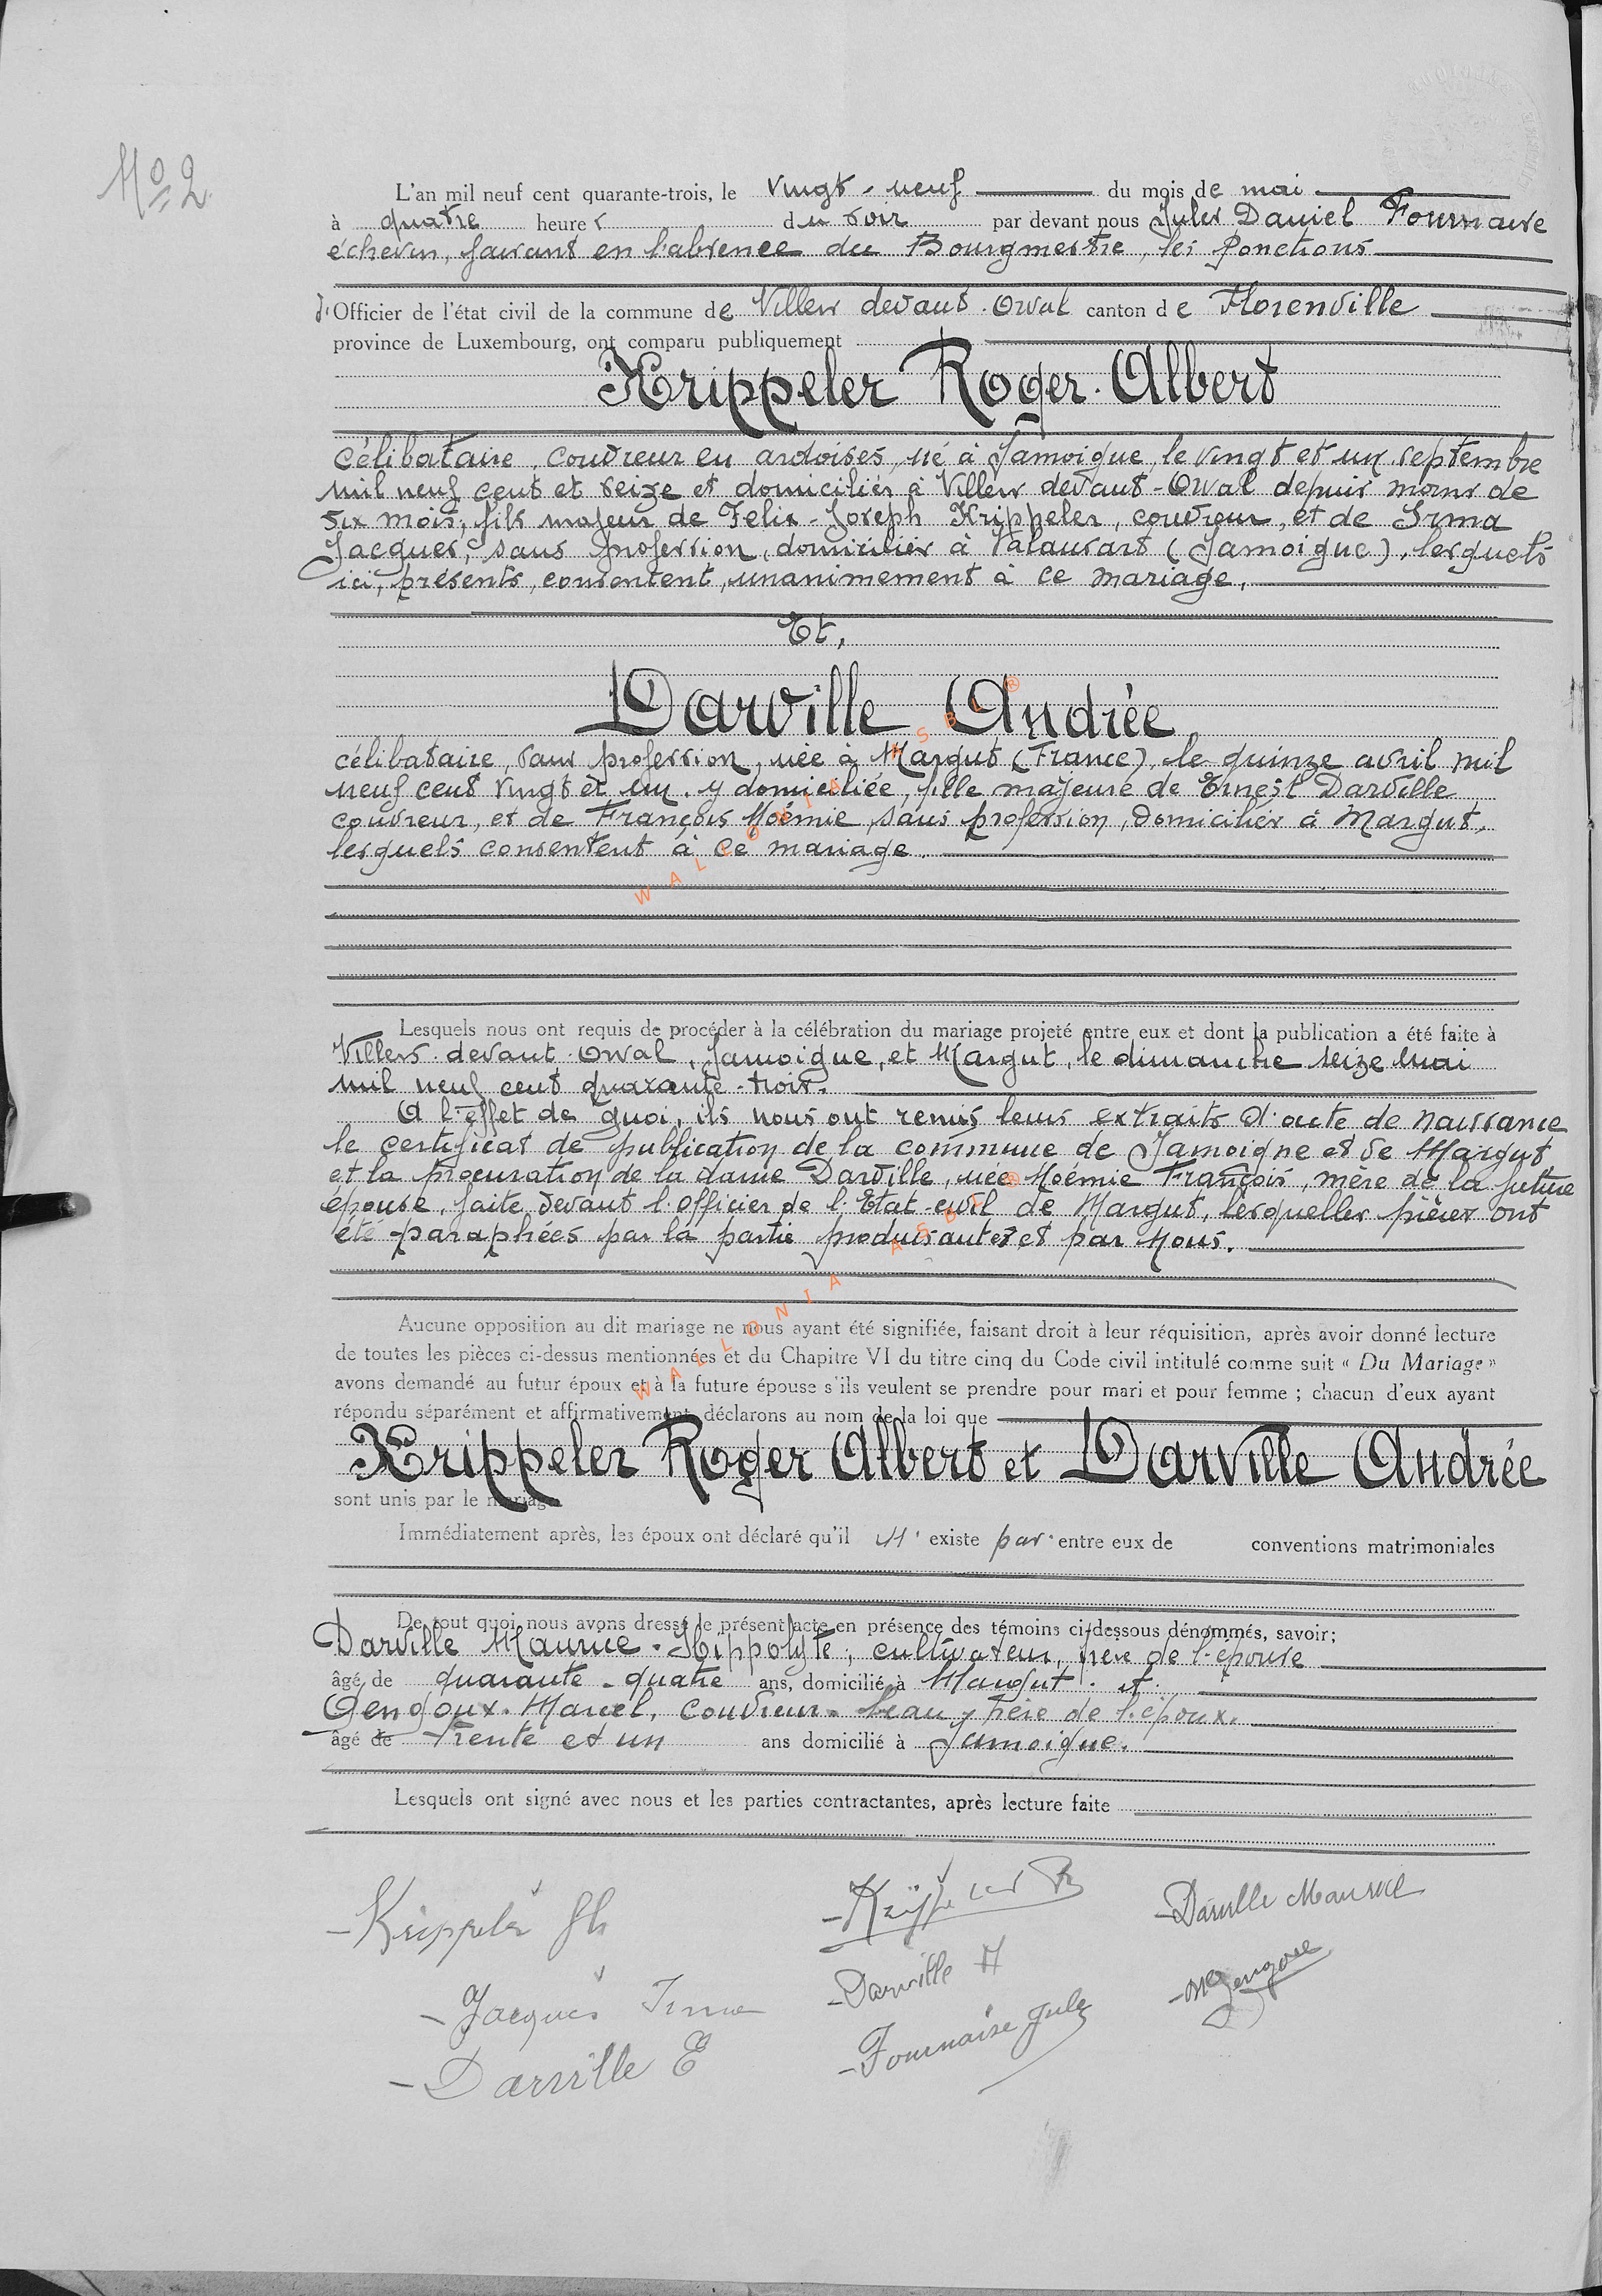 No 2
L'an mil neuf cent quarante-trois, le vingt-neuf du mois de mai
à quatre heures du soir par devant nous Jules Daniel Fournaise
échevin, faisant en l'absence du Bourgmestre, les fonctions
d'Officier de l'état civil de la commune de Villers devant-Orval canton de Florenville
province de Luxembourg, ont comparu publiquement
Krippeler Roger-Albert
célibataire, couvreur en ardoises, né à Jamoigne, le vingt et un septembre
mil neuf cent et seize et domiciliés à Villers devant-Orval depuis moins de
six mois, fils majeur de Felix-Joseph Krippeler, couvreur, et de Irma
Jacques, sans profession, domiciliés à Valansart (Jamoigne), lesquels
ici, présents, consentent, unanimement à ce mariage.
Et,
Darville Andrée
célibataire, sans profession, née à Margut (France), le quinze avril mil
neuf cent vingt et un. y domiciliée, fille majeure de Ernest Darville
couvreur, et de François Noémie, sans profession, domiciliés à Margut,
lesquels consentent à ce mariage.
Lesquels nous ont requis de procéder à la célébration du mariage projeté entre eux et dont la publication a été faite à
Villers-devant-Orval, Jamoigne, et Margut, le dimanche seize mai
mil neuf cent quarante-trois.
A l'effet de quoi, ils nous ont remis leurs extraits d'acte de naissance
le certificat de publication de la commune de Jamoigne et de Margut
et la procuration de la dame Darville, née Noémie François, mère de la future
épouse, faite devant l'Officier de l'Etat-civil de Margut, lesquelles pièces ont
été paraphées par la partie produisantes et par Nous.
Aucune opposition au dit mariage ne nous ayant été signifiée, faisant droit à leur réquisition, après avoir donné lecture
de toutes les pièces ci-dessus mentionnées et du Chapitre VI du titre cinq du Code civil intitulé comme suit « Du Mariage »
avons demandé au futur époux et à la future épouse s'ils veulent se prendre pour mari et pour femme ; chacun d'eux ayant
répondu séparément et affirmativement, déclarons au nom de la loi que
Krippeler Roger Albert et Darville Andrée
sont unis par le mariage
Immédiatement après, les époux ont déclaré qu'il n' existe pas entre eux de conventions matrimoniales
De tout quoi nous avons dressé le présent acte en présence des témoins ci-dessous dénommés, savoir;
Darville Maurice-Hippolyte, cultivateur, frère de l'épouse
âgé de quarante-quatre ans, domicilié à Margut. et
Gengoux-Marcel, couvreur-beau frère de l'époux.
âgé de trente et un ans domicilié à Jamoigne.
Lesquels ont signé avec nous et les parties contractantes, après lecture faite
-Krippeler -Krippeler R -Darville Maurice
-Jacques Irma -Darville A -M Gengoux
-Darville E -Fournaise Jules
WALLONIA ASBL ®
WALLONIA ASBL ®